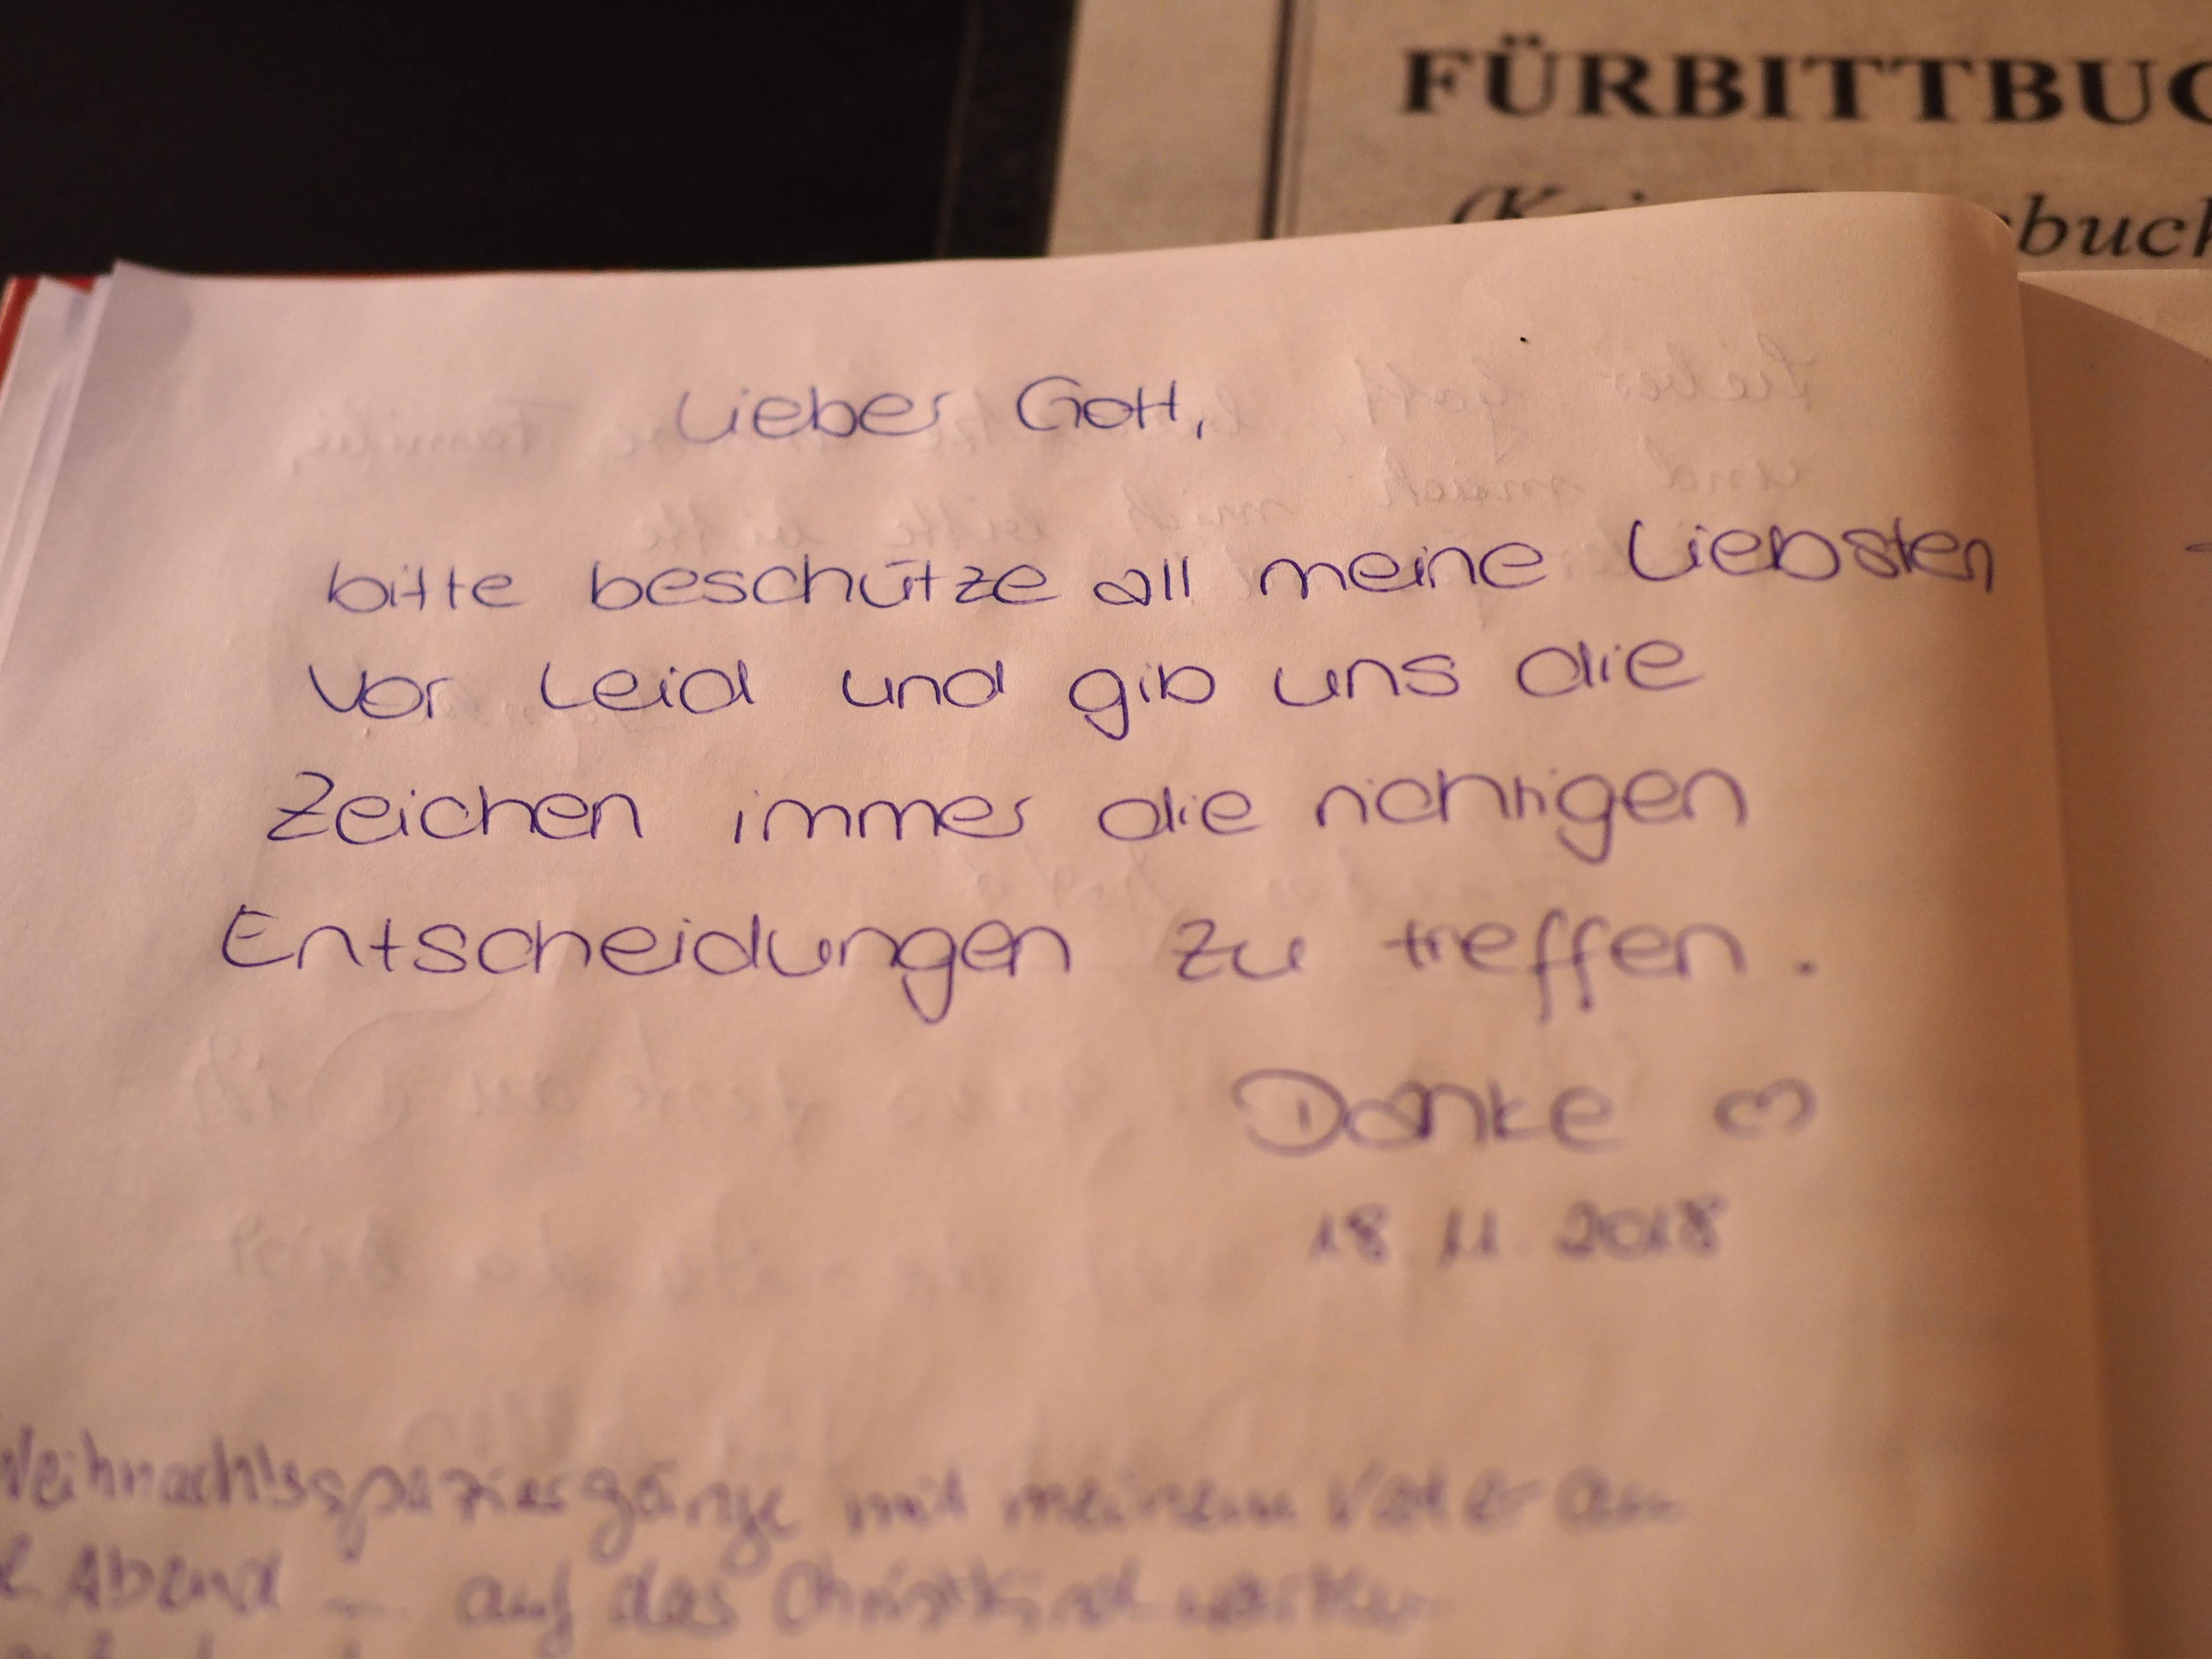 FÜRBITTBUC
buch
Lieber Gott,
bitte beschütze all meine Liebsten
vor Leid und gib uns die
Zeichen immer die richtigen
Entscheidungen zu treffen.
Danke ♡
18.11.2018
Weihnachtsspaziergänge mit meinem Vater am
Abend – auf das Christkind warten